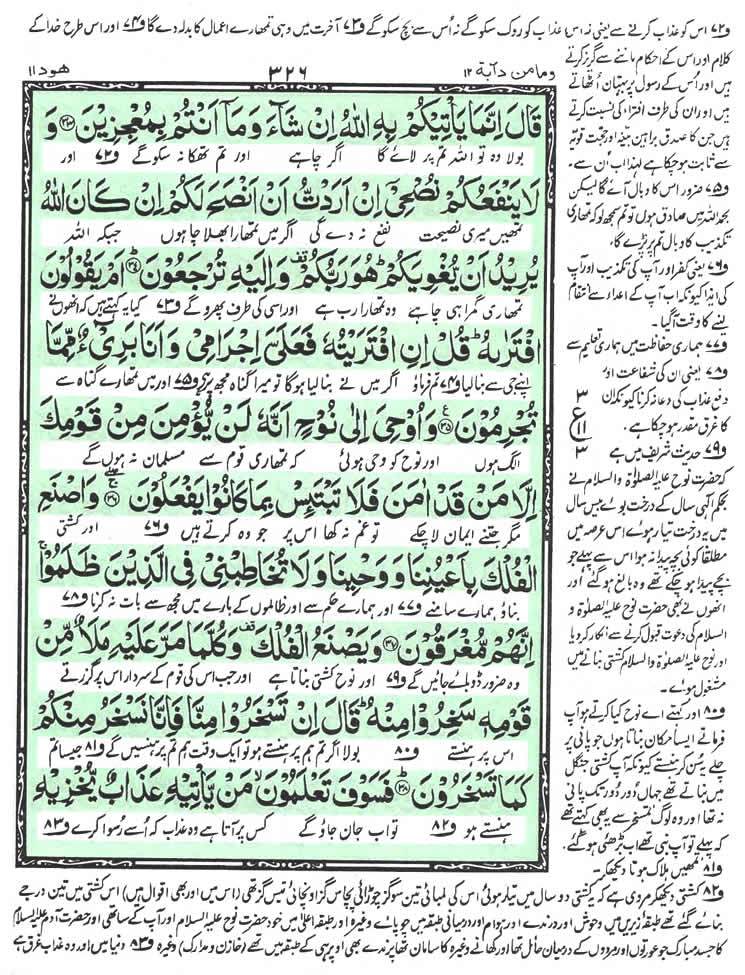 و۷۲ اس کو عذاب کرنے سے یعنی نہ اس عذاب کو روک سکو گے نہ اُس سے بچ سکو گے و۷۳ آخرت میں وہی تمہارے اعمال کا بدلہ دے گا و۷۴ اور اس طرح خدا کے
ھود ۱۱
۳۲۶
وما من دآبة ۱۲
قَالَ اِنَّمَا یَاْتِیْكُمْ بِهِ اللّٰهُ اِنْ شَآءَ وَمَاۤ اَنْتُمْ بِمُعْجِزِیْنَ۝۳۳ وَ
بولا وہ تو اللہ تم پر لائے گا اگر چاہے اور تم تھکا نہ سکو گے و۷۲ اور
لَا یَنْفَعُكُمْ نُصْحِیْۤ اِنْ اَرَدْتُّ اَنْ اَنْصَحَ لَكُمْ اِنْ كَانَ اللّٰهُ
تمھیں میری نصیحت نفع نہ دے گی اگر میں تمھارا بھلا چاہوں جبکہ اللہ
یُرِیْدُ اَنْ یُّغْوِیَكُمْ ؕ هُوَ رَبُّكُمْ ۫ وَاِلَیْهِ تُرْجَعُوْنَ۝۳۴ اَمْ یَقُوْلُوْنَ
تمھاری گمراہی چاہے وہ تمھارا رب ہے اور اسی کی طرف پھرو گے و۷۳ کیا یہ کہتے ہیں کہ انھوں نے
افْتَرٰىهُ ؕ قُلْ اِنِ افْتَرَیْتُهٗ فَعَلَیَّ اِجْرَامِیْ وَاَنَا بَرِیْٓءٌ مِّمَّا
اپنے جی سے بنا لیا و۷۴ تم فرماؤ اگر میں نے بنا لیا ہوگا تو میرا گناہ مجھ پر ہے و۷۵ اور میں تمھارے گناہ سے
تُجْرِمُوْنَ۝۳۵ وَاُوْحِیَ اِلٰی نُوْحٍ اَنَّهٗ لَنْ یُّؤْمِنَ مِنْ قَوْمِكَ
الگ ہوں اور نوح کو وحی ہوئی کہ تمھاری قوم سے مسلمان نہ ہوں گے
اِلَّا مَنْ قَدْ اٰمَنَ فَلَا تَبْتَىِٕسْ بِمَا كَانُوْا یَفْعَلُوْنَ۝۳۶ وَاصْنَعِ
مگر جتنے ایمان لا چکے تو غم نہ کھا اس پر جو وہ کرتے ہیں و۷۶ اور کشتی
الْفُلْكَ بِاَعْیُنِنَا وَوَحْیِنَا وَلَا تُخَاطِبْنِیْ فِی الَّذِیْنَ ظَلَمُوْا ۚ
بناؤ ہمارے سامنے و۷۷ اور ہمارے حکم سے اور ظالموں کے بارے میں مجھ سے بات نہ کرنا و۷۸
اِنَّهُمْ مُّغْرَقُوْنَ۝۳۷ وَیَصْنَعُ الْفُلْكَ ۫ وَكُلَّمَا مَرَّ عَلَیْهِ مَلَاٌ مِّنْ
وہ ضرور ڈوبائے جائیں گے و۷۹ اور نوح کشتی بناتا ہے اور جب اس کی قوم کے سردار اس پر گزرتے
قَوْمِهٖ سَخِرُوْا مِنْهُ ؕ قَالَ اِنْ تَسْخَرُوْا مِنَّا فَاِنَّا نَسْخَرُ مِنْكُمْ
اس پر ہنستے و۸۰ بولا اگر تم ہم پر ہنستے ہو تو ایک وقت ہم تم پر ہنسیں گے و۸۱ جیسا تم
كَمَا تَسْخَرُوْنَ۝۳۸ فَسَوْفَ تَعْلَمُوْنَ ۙ مَنْ یَّاْتِیْهِ عَذَابٌ یُّخْزِیْهِ
ہنستے ہو و۸۲ تو اب جان جاؤ گے کس پر آتا ہے وہ عذاب کہ اُسے رسوا کرے و۸۳
کلام اور اس کے احکام ماننے سے گریز کرتے
ہیں اور اُس کے رسول پر بہتان اُٹھاتے
ہیں اور ان کی طرف افتراء کی نسبت کرتے
ہیں جن کا صدق براہین بینہ اور حجت قویہ
سے ثابت ہو چکا ہے لہٰذا اب اُن سے۔
و۷۵ ضرور اس کا وبال آئے گا لیکن
بحمد اللہ میں صادق ہوں تو تم سمجھ لو کہ تمھاری
تکذیب کا وبال تم پر پڑے گا،
و۷۶ یعنی کفر اور آپ کی تکذیب اور آپ
کی ایذا کیونکہ اب آپ کے اعداء سے انتقام
لینے کا وقت آ گیا۔
و۷۷ ہماری حفاظت میں ہماری تعلیم سے
و۷۸ یعنی ان کی شفاعت اور
دفع عذاب کی دعا نہ کرنا کیونکہ ان
کا غرق مقدر ہو چکا ہے۔
۳
ع
۱۱
۳
و۷۹ حدیث شریف میں ہے
کہ حضرت نوح علیہ الصلوٰۃ والسلام نے
بحکم الٰہی سال کے درخت بوئے بیس سال
میں یہ درخت تیار ہوئے اس عرصہ میں
مطلقا کوئی بچہ پیدا نہ ہوا اس سے پہلے جو
بچے پیدا ہو چکے تھے وہ بالغ ہو گئے اور
انھوں نے بھی حضرت نوح علیہ الصلوٰۃ و
السلام کی دعوت قبول کرنے سے انکار کر دیا
اور نوح علیہ الصلوٰۃ والسلام کشتی بنانے میں
مشغول ہوئے۔
و۸۰ اور کہتے اے نوح کیا کرتے ہو آپ
فرماتے ایسا مکان بناتا ہوں جو پانی پر
چلے یہ سُن کر ہنستے کیونکہ آپ کشتی جنگل
میں بناتے تھے جہاں دُور دُور تک پانی
نہ تھا اور وہ لوگ تمسخر سے یہ بھی کہتے تھے
کہ پہلے تو آپ نبی تھے اب بڑھئی ہو گئے۔
و۸۱ تمھیں ہلاک ہوتا دیکھ کر۔
و۸۲ کشتی دیکھ کر مروی ہے کہ یہ کشتی دو سال میں تیار ہوئی اس کی لمبائی تین سو گز چوڑائی پچاس گز اونچائی تیس گز تھی (اس میں اور بھی اقوال ہیں) اس کشتی میں تین درجے
بنائے گئے تھے طبقہ زیریں میں وحوش اور درندے اور ہوام اور درمیانی طبقہ میں چوپائے وغیرہ اور طبقہ اعلیٰ میں خود حضرت نوح علیہ السلام اور آپ کے ساتھی اور حضرت آدم علیہ السلام
کا جسد مبارک جو عورتوں اور مردوں کے درمیان حائل تھا اور کھانے وغیرہ کا سامان تھا پرندے بھی اوپر ہی کے طبقہ میں تھے (خازن و مدارک) وغیرہ و۸۳ دنیا میں اور وہ عذاب غرق ہے